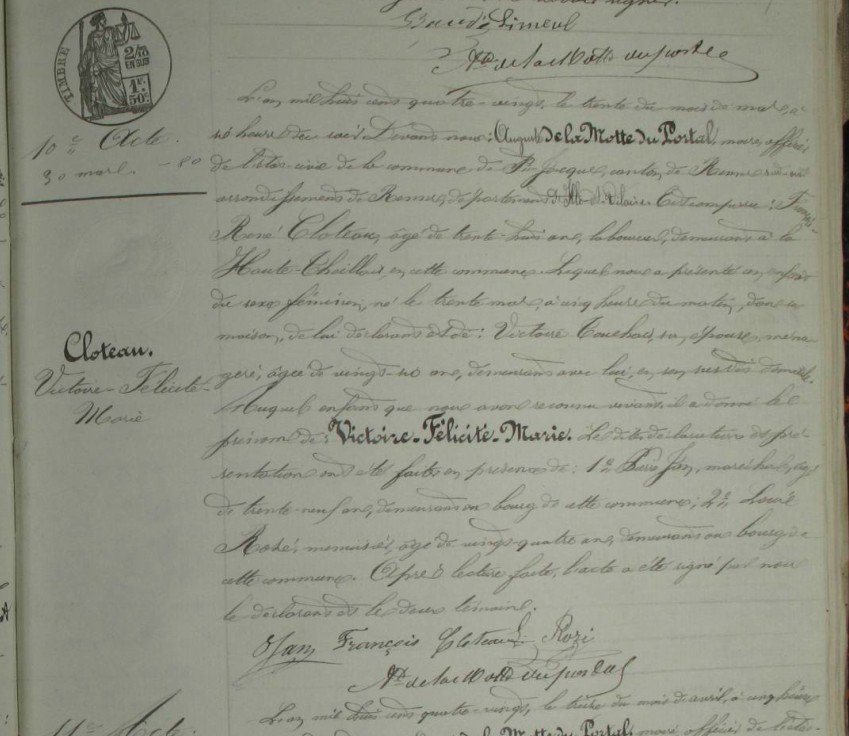 Baud Limeul
Ate de la Motte du portal
TIMBRE
2/10
EN SUS
1F.
50c.
10e Acte.
30 mars - 80
Cloteau.
Victoire-Félicité-
Marie
L'an mil huit cent quatre-vingt, le trente du mois de mars, à
six heures du soir. Devant nous: Auguste De la Motte Du Portal, maire, officier
de l'état-civil de la commune de St Jacques, canton de Rennes sud-
arrondissement de Rennes, département d'Ille-et-Vilaine Est comparu: François-
René Cloteau, âgé de trente-huit ans, laboureur, demeurant à la
Haute en cette commune. Lequel nous a présenté un enfant
du sexe féminin, né le trente mars, à cinq heures du matin, dans la
maison, de lui déclarant et de: Victoire Touchais, son épouse, ména-
gère, âgée de vingt-six ans, demeurant avec lui, en son susdit domicile.
Auquel enfant que nous avons reconnu vivant, il a donné les
prénoms de: Victoire-Félicité-Marie. Les dites déclaration et pré-
sentation ont été faites en présence de: 1° Pierre Jan, maréchal, âgé
de trente-neuf ans, demeurant au bourg de cette commune; 2° Louis
Rozé, menuisier, âgé de vingt-quatre ans, demeurant au bourg de
cette commune. Après lecture faite, l'acte a été signé par nous
le déclarant et les deux témoins.
Jan François Cloteau L. Rozé
Ate de la Motte du portal
11e Acte.
L'an mil huit cent quatre-vingt, le treize du mois d'avril, à cinq heures
de la Motte du Portal, maire, officier de l'état-